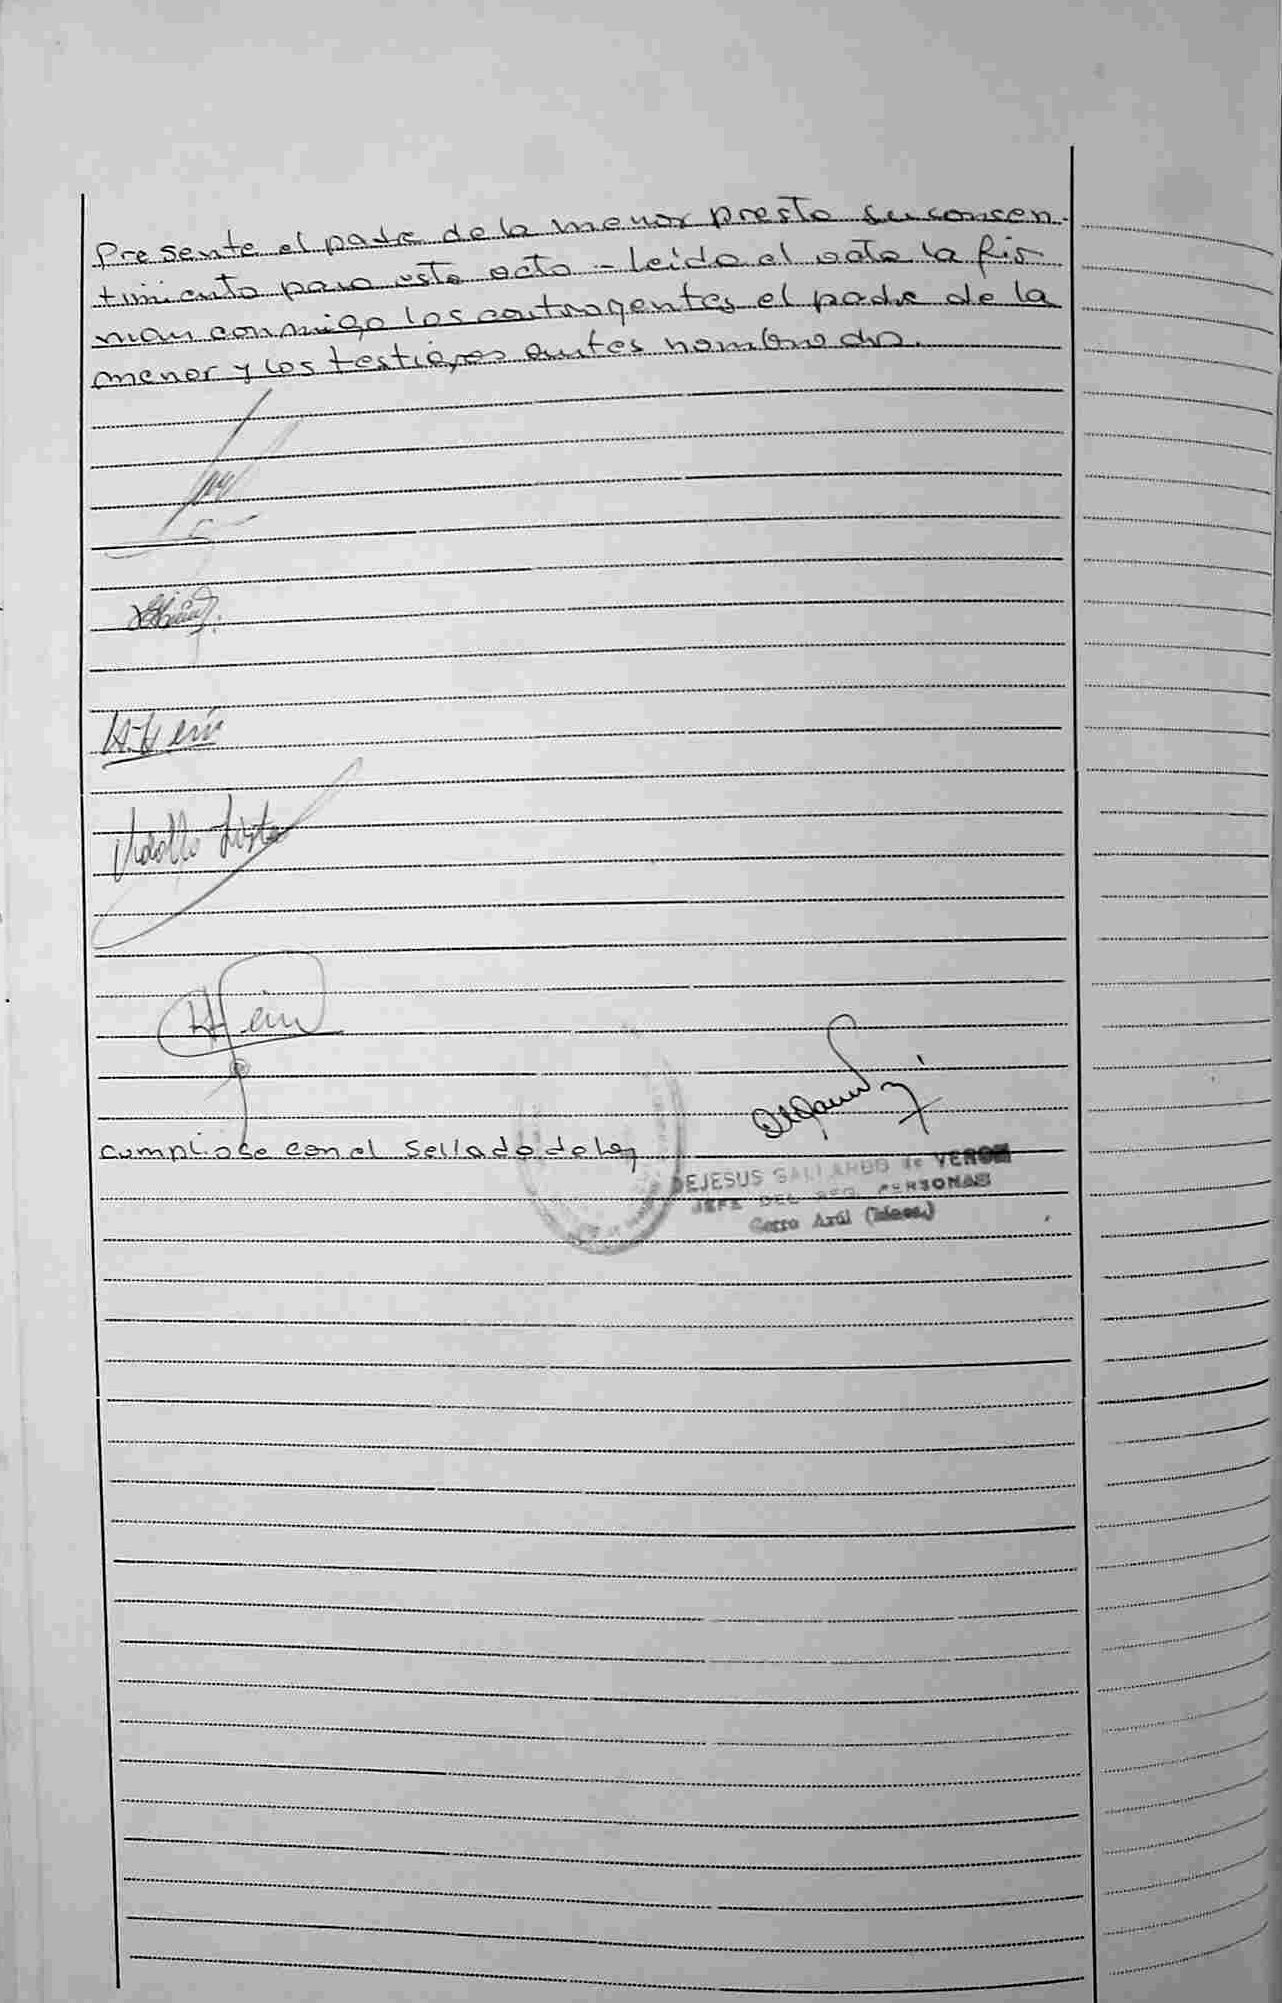 Presente el padre de la menor presto su consen-
timiento para este acto - leido el acta la fir-
man conmigo los contrayentes el padre de la
menor y los testigos antes nombrado.
Adolfo
cumpliose con el sellado de ley
DEJESUS GALLARDO de VERON
JEFE DEL REG. PERSONAS
Cerro Azúl (Mnes.)